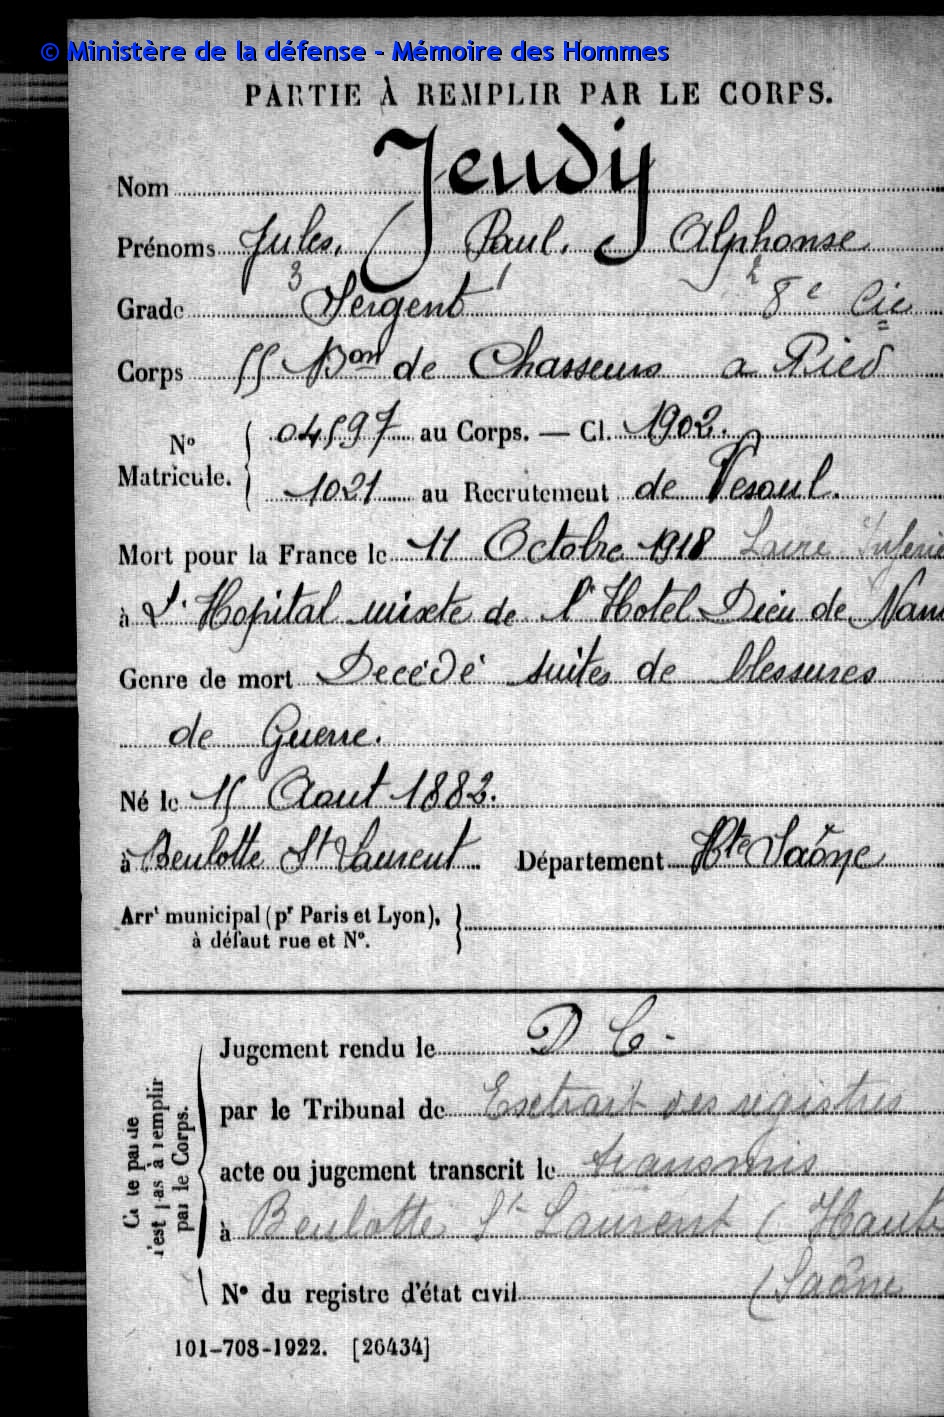 © Ministère de la défense - Mémoire des Hommes
PARTIE À REMPLIR PAR LE CORPS.
Nom Jeudy
Prénoms Jules, Paul, Alphonse
3 1 2
Grade Sergent 8e Cie
Corps 55 Bon de Chasseurs a Pied
No Matricule. { 04597 au Corps. — Cl. 1902.
1021 au Recrutement de Vesoul.
Mort pour la France le 11 Octobre 1918 Loire Inférie
à L'Hopital mixte de l'Hotel Dieu de Nan
Genre de mort Decédé suites de blessures
de Guerre.
Né le 15 Aout 1882.
à Beulotte St Laurent Département Hte Saône
Arrt municipal (pr Paris et Lyon), }
à défaut rue et No.
Cette partie n'est pas à remplir par le Corps.
Jugement rendu le D C -
par le Tribunal de Extrait des registres
acte ou jugement transcrit le transmis
à Beulotte St Laurent (Haute
No du registre d'état civil (Saône
101-708-1922. [26434]